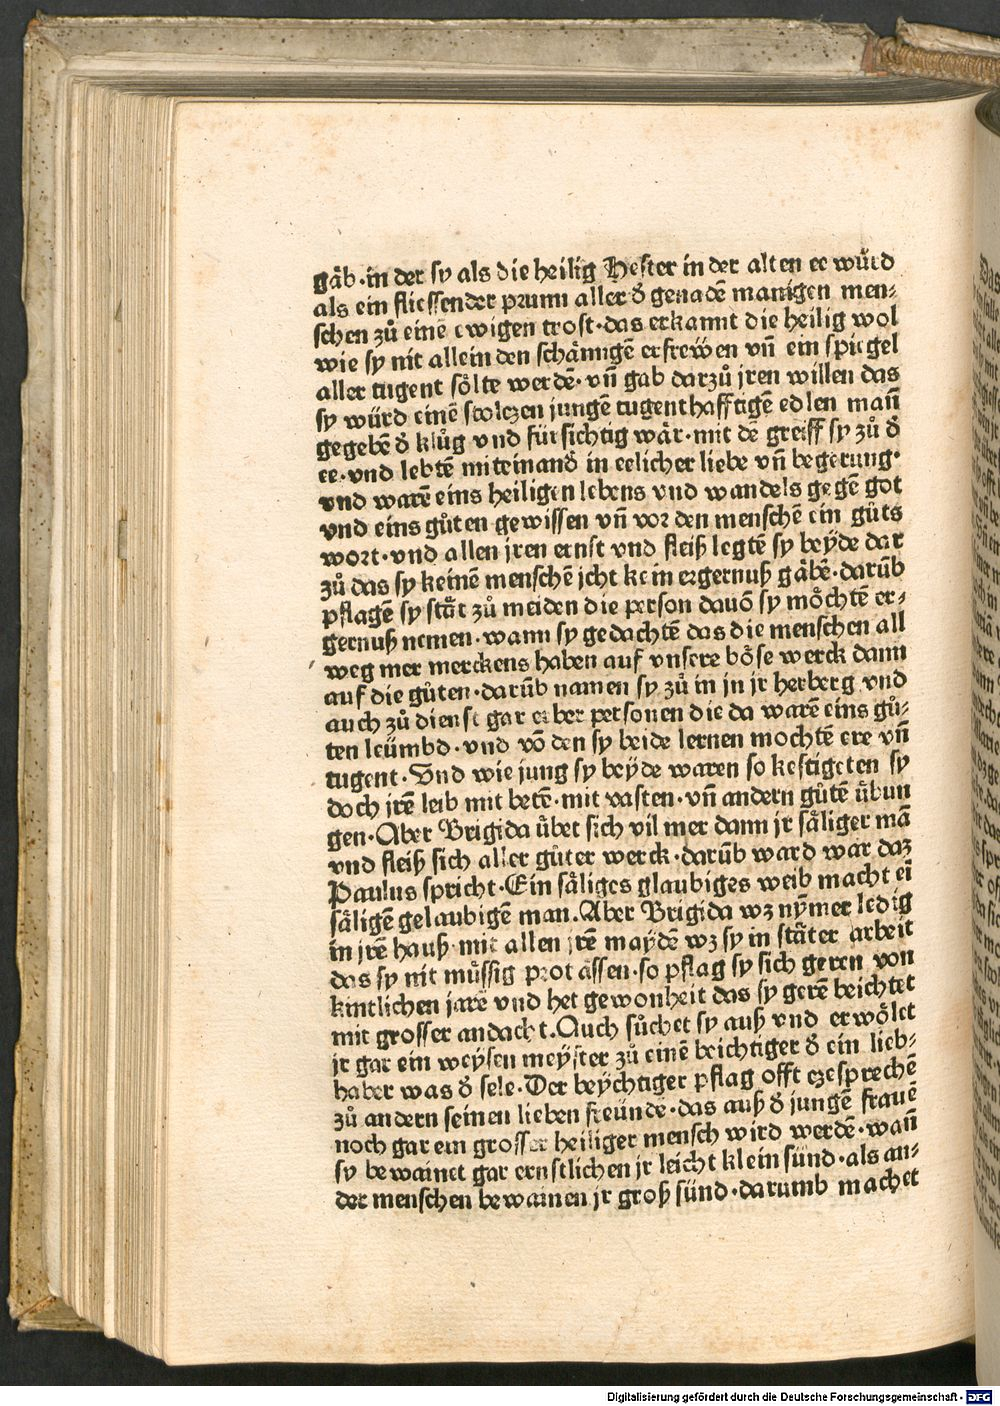 gäb·in der sy als die heilig Hester in der alten ee wůrd
als ein fliessender prunn aller d̕ genadē manigen men⸗
schen zů einē ewigen trost·das erkannt die heilig wol
wie sy nit allein den schämigē erfreẅen vn̄ ein spiegel
aller tugent sölte werdē·vn̄ gab darzů jren willen das
sy würd einē stolczen jungē tugenthafftigē edlen man̄
gegebē d̕ klůg vnd fürsichtig wär·mit dē greiff sy zů d̕
ee·vnd lebtē miteinand̕ in eelicher liebe vn̄ begerung·
vnd warē eins heiligen lebens vnd wandels gegē got
vnd eins gůten gewissen vn̄ vor den menschē ein gůts
wort·vnd allen jren ernst vnd fleiß legtē sy beÿde dar
zů das sy keinē menschē jcht kein ergernuß gäbē·darūb
pflagē sy stät zů meiden die person dauō sy möchtē er⸗
gernuß nemen·wann sy gedachtē das die menschen all
weg mer merckens haben auf vnsere böse werck dann
auf die gůten·darūb namen sy zů in jn jr herberg vnd
auch zů dienst gar erber personen die da warē eins gů⸗
ten leümbd·vnd vō den sy beide lernen mochtē ere vn̄
tugent·Vnd wie jung sy beÿde waren so kestigeten sy
doch jrē leib mit betē·mit vasten·vn̄ andern gůtē übun
gen·Aber Brigida übet sich vil mer dann jr säliger mā
vnd fleiß sich aller gůter werck·darūb ward war daz
Paulus spricht·Ein säliges glaubiges weib macht eī
säligē gelaubigē man.Aber Brigida wz nȳmer ledig
in jrē hauß·mit allen jrē maÿdē wz sy in stäter arbeit
das sy nit müssig prot ässen·so pflag sy sich geren von
kintlichen jarē vnd het gewonheit das sy gerē beichtet
mit grosser andacht.Auch sůchet sy auß vnd erwölet
jr gar ein weÿsen meÿster zů einē beichtiger d̕ ein lieb⸗
haber was d̕ sele·Der beÿchtiger pflag offt czesprechē
zů andern seinen lieben freünde·das auß d̕ jungē frauē
noch gar ein grosser heiliger mensch wird werdē·wan̄
sy bewainet gar ernstlichen jr leicht klein sünd·als an⸗
der menschen bewainen jr groß sünd·darumb machet
Digitalisierung gefördert durch die Deutsche Forschungsgemeinschaft - DFG